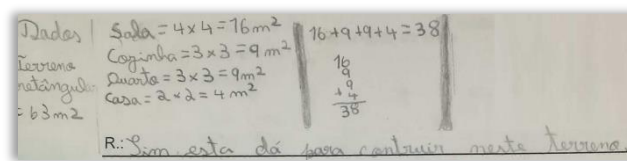 Dados
Terreno
retângulo
= 63m2
Sala = 4 x 4 = 16m²
Cozinha = 3 x 3 = 9 m²
Quarto = 3 x 3 = 9m²
Casa = 2 x 2 = 4 m²
16+9+9+4=38
16
9
9
+ 4
38
R.: Sim esta dá para contruir neste terreno.